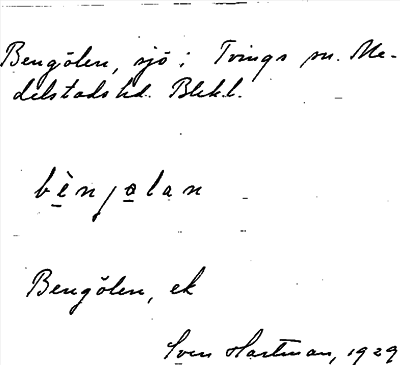 Bengölen, sjö i Tvings sn. Me-
delstads hd. Blek.l.
bènjɵlan
Bengölen, ek
Sven Hartman, 1929